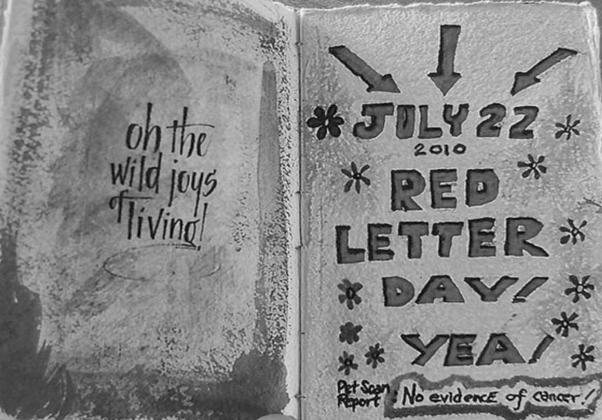 oh the
wild joys
of living!
JULY 22
2010
RED
LETTER
DAY!
YEA!
Pet Scan
Report : No evidence of cancer!